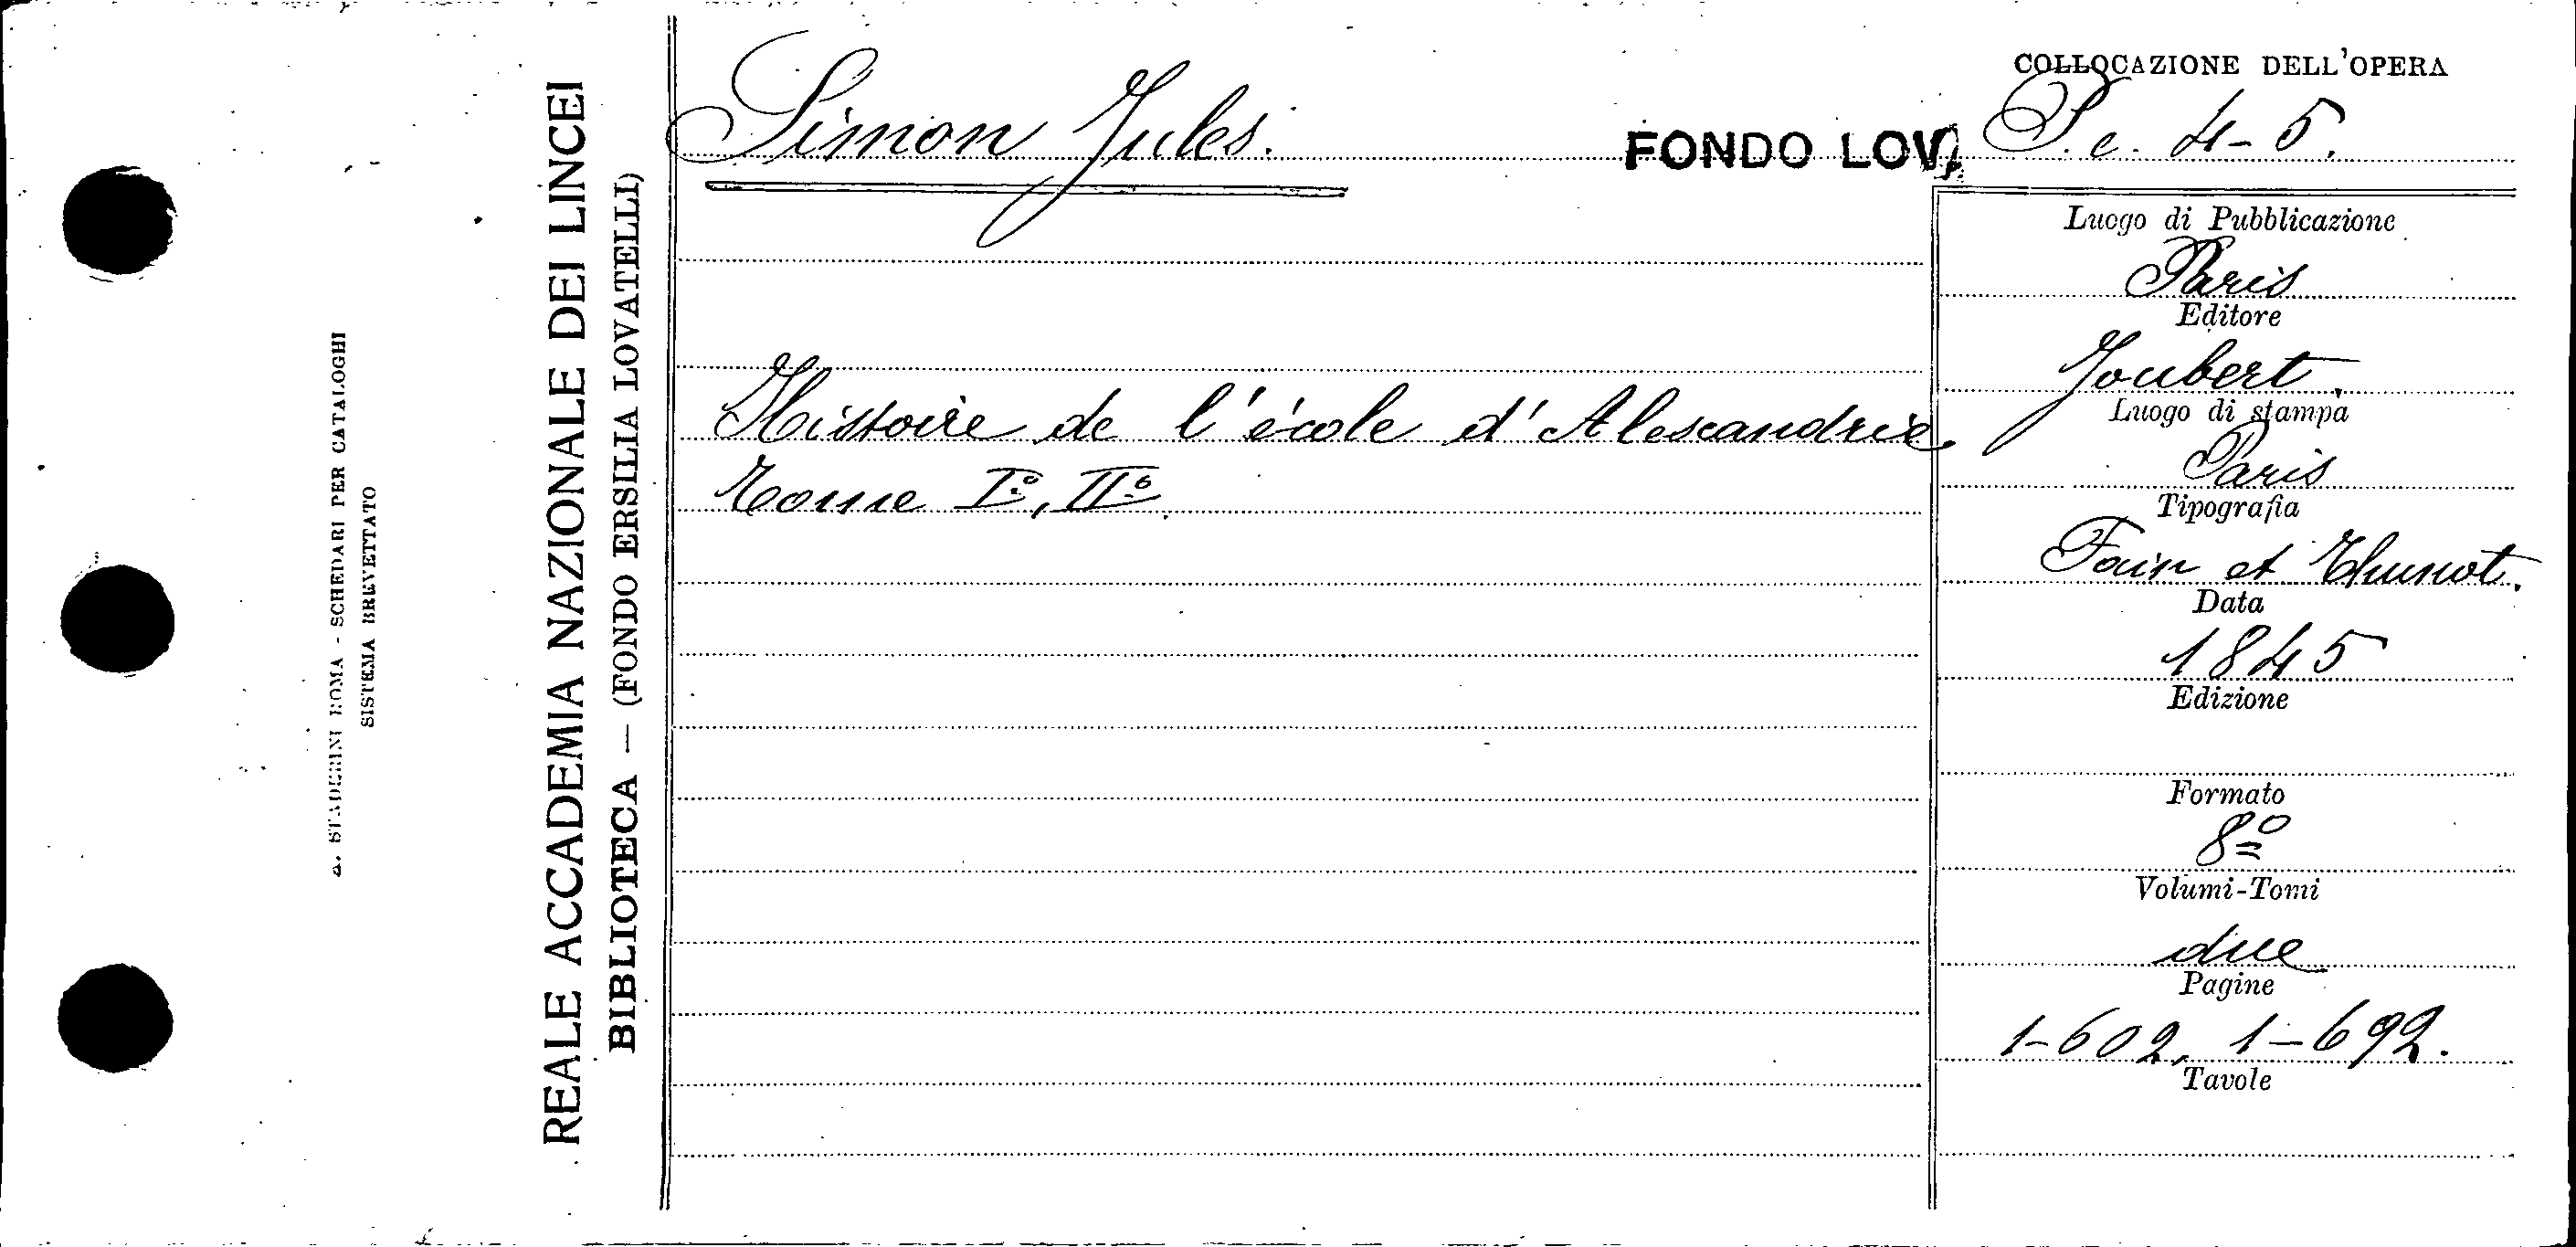 A. STADERINI ROMA - SCHEDARI PER CATALOGHI
SISTEMA BREVETTATO
REALE ACCADEMIA NAZIONALE DEI LINCEI
BIBLIOTECA — (FONDO ERSILIA LOVATELLI)
Simon Jules.
FONDO LOV.
Histoire de l'école d'Alexandrie
Tome I°, II°.
COLLOCAZIONE DELL'OPERA
P. c. 4-5.
Luogo di Pubblicazione
Paris
Editore
Joubert.
Luogo di stampa
Paris
Tipografia
Fain et Thunot.
Data
1845
Edizione
Formato
8º
Volumi-Tomi
due
Pagine
1-602, 1-692.
Tavole